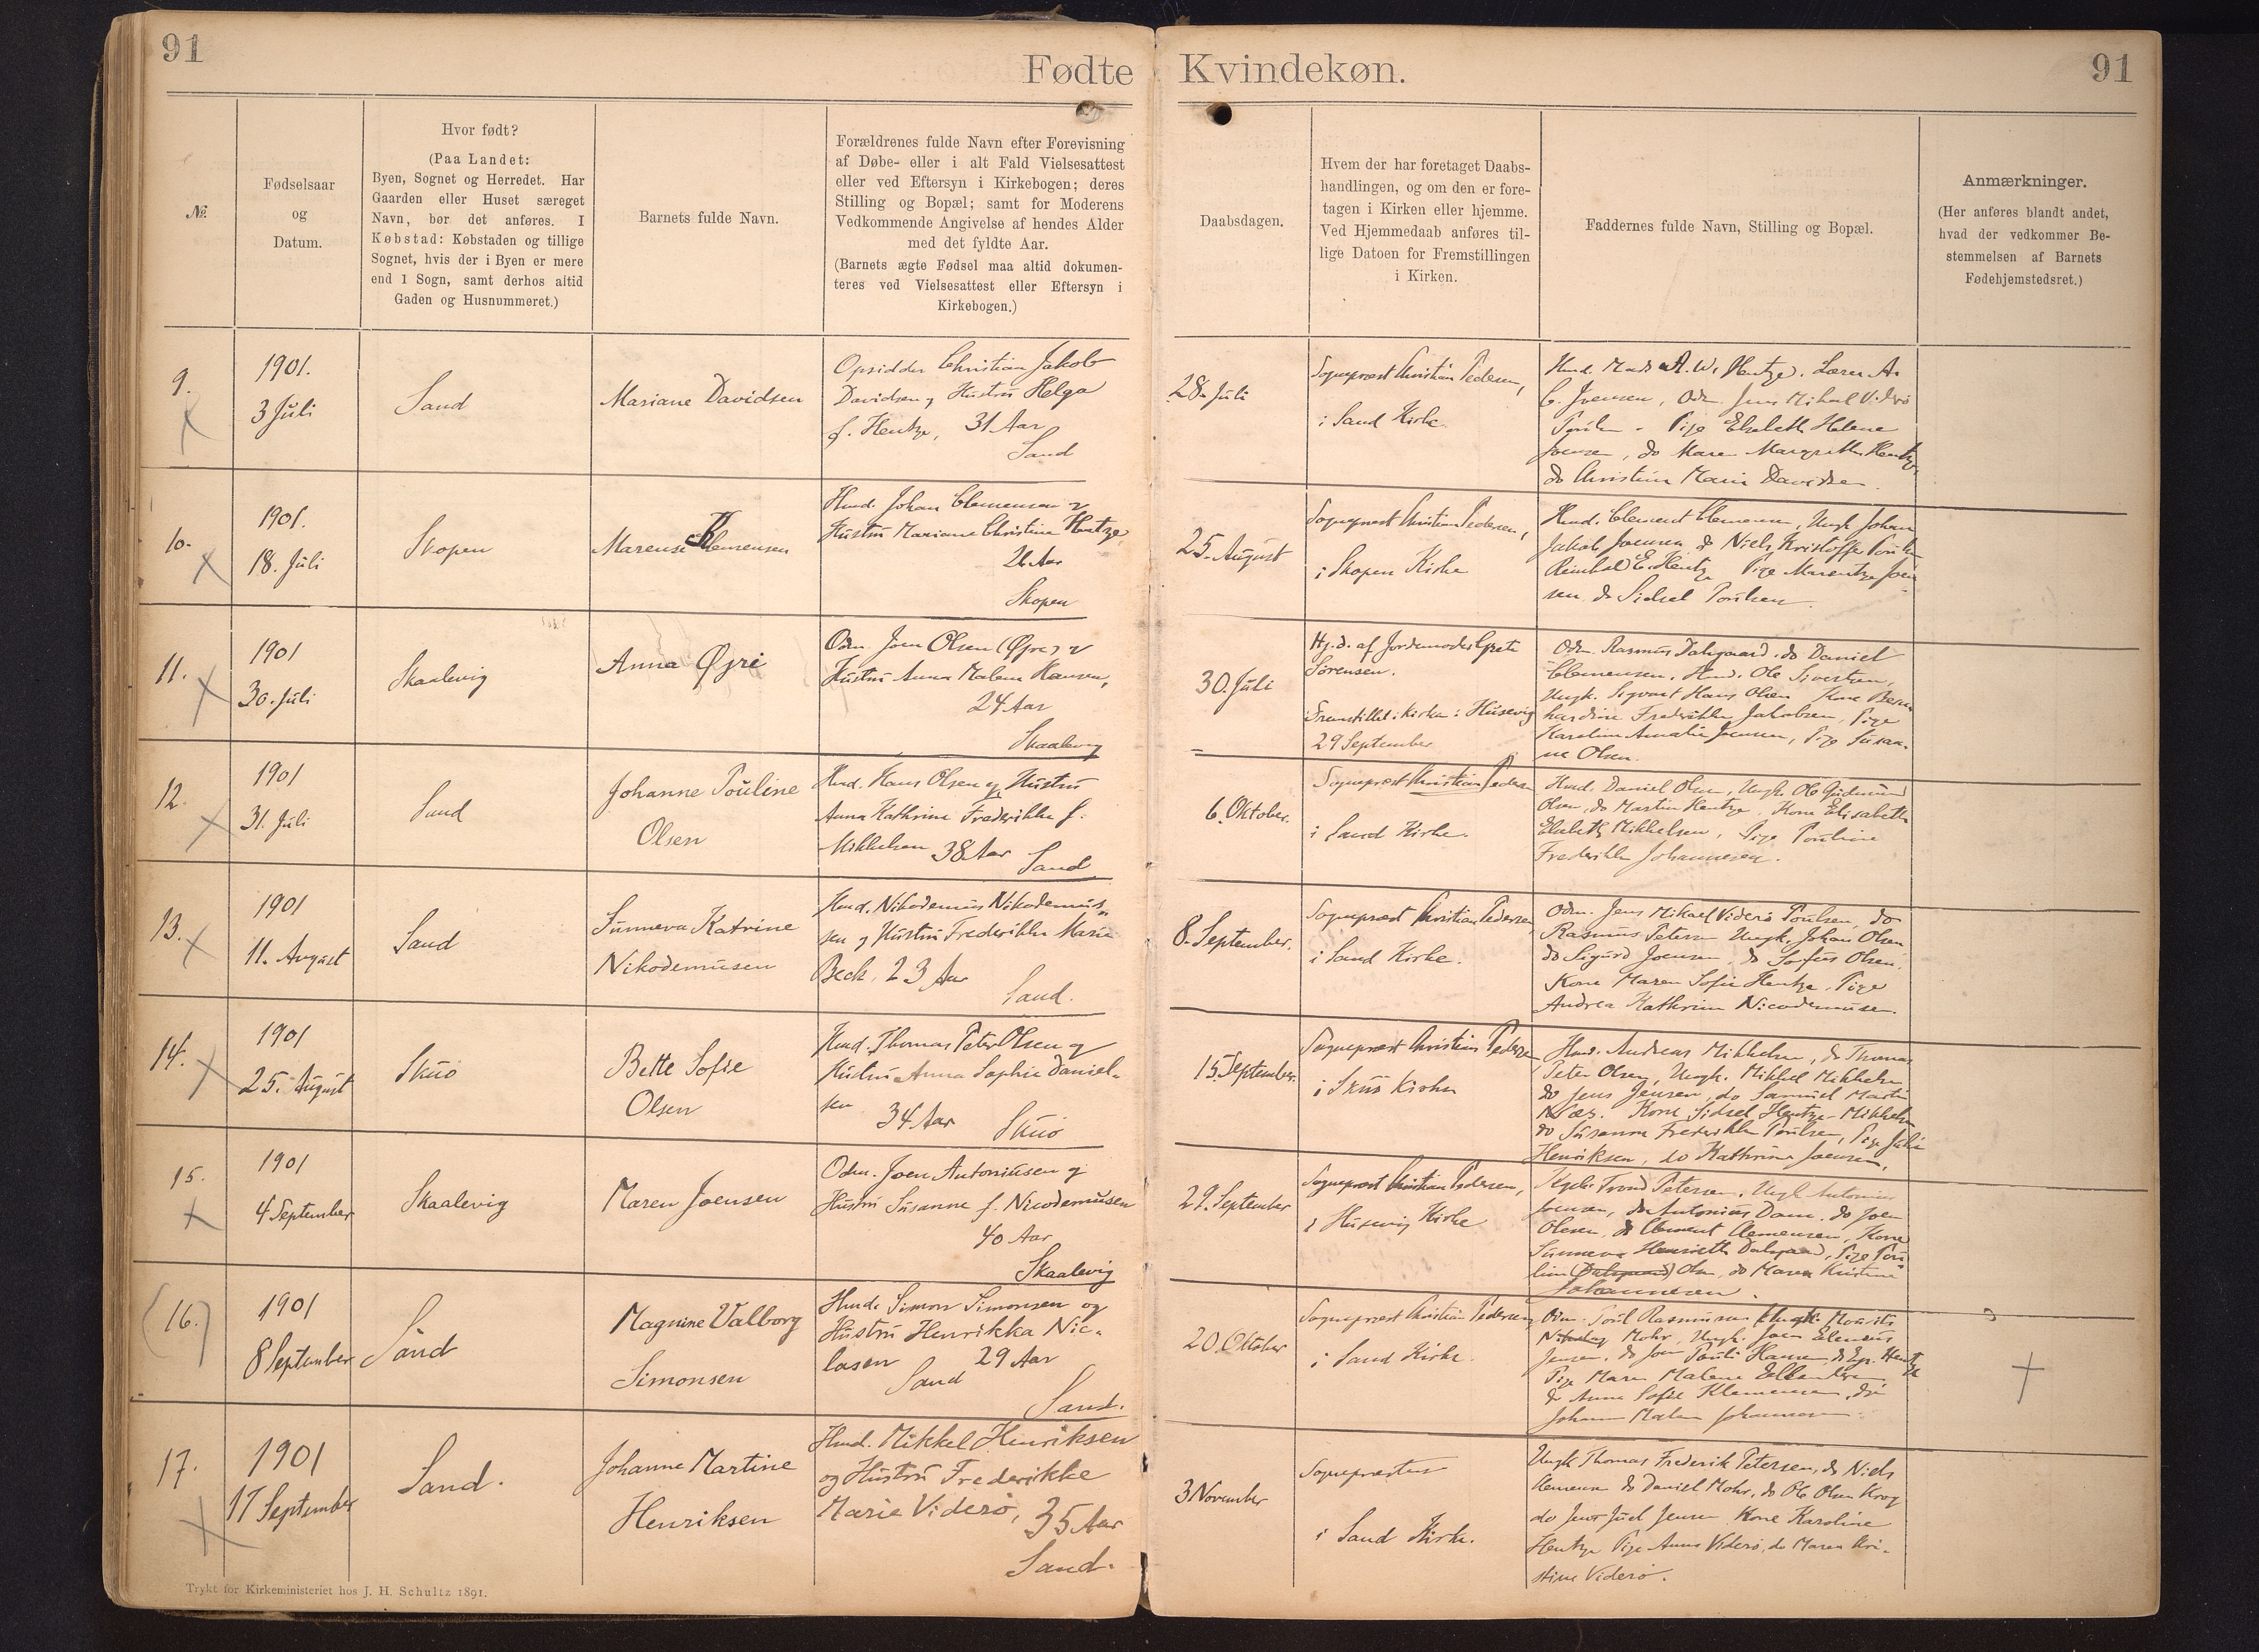 91
Fødte
Kvindekøn.
91
№.
Fødselsaar
og
Datum.
Hvor født?
(Paa Landet:
Byen, Sognet og Herredet. Har
Gaarden eller Huset særeget
Navn, bør det anføres. I
Købstad: Købstaden og tillige
Sognet, hvis der i Byen er mere
end 1 Sogn, samt derhos altid
Gaden og Husnummeret.)
Barnets fulde Navn.
Forældrenes fulde Navn efter Forevisning
af Døbe- eller i alt Fald Vielsesattest
eller ved Eftersyn i Kirkebogen; deres
Stilling og Bopæl; samt for Moderens
Vedkommende Angivelse af hendes Alder
med det fyldte Aar.
(Barnets ægte Fødsel maa altid dokumen-
teres ved Vielsesattest eller Eftersyn i
Kirkebogen.)
Daabsdagen.
Hvem der har foretaget Daabs-
handlingen, og om den er fore-
tagen i Kirken eller hjemme.
Ved Hjemmedaab anføres til-
lige Datoen for Fremstillingen
i Kirken.
Faddernes fulde Navn, Stilling og Bopæl.
Anmærkninger.
(Her anføres blandt andet,
hvad der vedkommer Be-
stemmelsen af Barnets
Fødehjemstedsret.)
9.
1901.
3 Juli
Sand
Mariane Davidsen
Opsidder Christian Jakob
Davidsen og Hustru Helga
f. Hentze, 31 Aar
Sand
28. Juli
Sognepræst Christian Pedersen,
i Sand Kirke.
Hmd. Mads A. W. Hentze. Lærer A.
C. Joensen, Odm. Jens Mikael Viderø
Poulsen - Pige Elsebeth Helene
Joensen, do Maren Margrethe Hentze
do Christine Marie Davidsen.
10.
1901.
18. Juli
Skopen
Marense Klemensen
Hmd. Johan Clemensen &
Hustru Mariane Christine Hentze
26 Aar
Skopen
25. August
Sognepræst Christian Pedersen,
i Skopen Kirke
Hmd. Clement Clemensen, Ungk. Johan
Jakob Joensen do Niels Kristoffer Poulsen
Reinhold E. Hentze Pige Marentze Joen-
sen do Sidsel Poulsen.
11.
1901
30. Juli
Skaalevig
Anna Øjre
Odm. Joen Olsen (Øjre) &
Hustru Anna Malene Hansen,
24 Aar
Skaalevig
30. Juli
Hj. d. af Jordemoder Grete
Sørensen.
Fremstillet i Kirken i Husevig
29 September
Odm. Rasmus Dalsgaard, do Daniel
Clemensen, Hmd. Ole Sivertsen,
Ungk. Sigvart Hans Olsen Kone Bern-
hardine Frederikke Jakobsen, Pige
Karoline Amalie Joensen, Pige Susan-
ne Olsen.
12.
1901
31. Juli
Sand
Johanne Pouline
Olsen
Hmd. Hans Olsen og Hustru
Anna Kathrine Frederikke f.
Mikkelsen 38 Aar
Sand
6. Oktober.
Sognepræst Christian Pedersen
i Sand Kirke.
Hmd. Daniel Olsen, Ungk. Ole Gudmund
Olsen, do Martin Hentze, Kone Elisabeth
Elsebeth Mikkelsen, Pige Pouline
Frederikke Johannesen.
13.
1901
11. August
Sand
Sunneva Katrine
Nikodemusen
Hmd. Nikodemus Nikodemus-
sen og Hustru Frederikke Marie
Beck, 23 Aar
Sand.
8. September.
Sognepræst Christian Pedersen,
i Sand Kirke.
Odm. Jens Mikael Viderø Poulsen, do
Rasmus Petersen Ungk. Johan Olsen
do Sigurd Joensen, do Sofus Olsen,
Kone Maren Sofie Hentze, Pige
Andrea Kathrine Nicodemusen.
14.
1901
25. August
Skuø
Bette Sofie
Olsen
Hmd. Thomas Peter Olsen og
Hustru Anna Sophie Daniel-
sen
34 Aar
Skuø
15. September.
Sognepræst Christian Pedersen
i Skuø Kirke
Hmd. Andreas Mikkelsen, do Thomas
Peter Olsen, Ungk. Mikkel Mikkelsen
do Jens Jensen, do Samuel Martin
Næs. Kone Sidsel Hentze-Mikkelsen
do Susanne Frederikke Poulsen, Pige Julie
Henriksen, do Kathrine Joensen,
15.
1901
4 September
Skaalevig
Maren Joensen
Odm. Joen Antoniusen og
Hustru Susanne f. Nicodemusen
40 Aar
Skaalevig
29. September
Sognepræst Christian Pedersen,
i Husevig Kirke
Trond Petersen, Ungk Antonius
Joensen, do Antonius Dam. do Joen
Olsen, do Clement Clemensen, Kone
Sunneva Henriette Dalsgaard, Pige Pou-
line (Dalsgaard) Olsen, do Maren Kristine
Johannesen.
(16.)
1901
8 September
Sand
Magnine Valborg
Simonsen
Hmd. Simon Simonsen og
Hustru Henrikka Nic-
lasen 29 Aar
Sand
Sand.
20. Oktober
Sognepræst Christian Pedersen,
i Sand Kirke.
Odm. Poul Rasmussen, Ungk. Mourits
Mohr, Ungk. Joen Elemeus
Jensen, do Joen Pauli Hansen, do Hentze
Pige Maren Malene
do Anna Sofie Klemensen, do
Johanne Malene Johannesen
17.
1901
17 September
Sand.
Johanne Martine
Henriksen
Hmd. Mikkel Henriksen
og Hustru Frederikke
Marie Viderø, 35 Aar
Sand.
3 November
Sognepræsten
i Sand Kirke.
Ungk Thomas Frederik Petersen, do Niels
Clemensen do Daniel Mohr, do Ole Olsen Krog
do Jens Juel Jensen Kone Karoline
Hentze Pige Anna Viderø, do Maren Kri-
stine Viderø.
Trykt for Kirkeministeriet hos J. H. Schultz 1891.